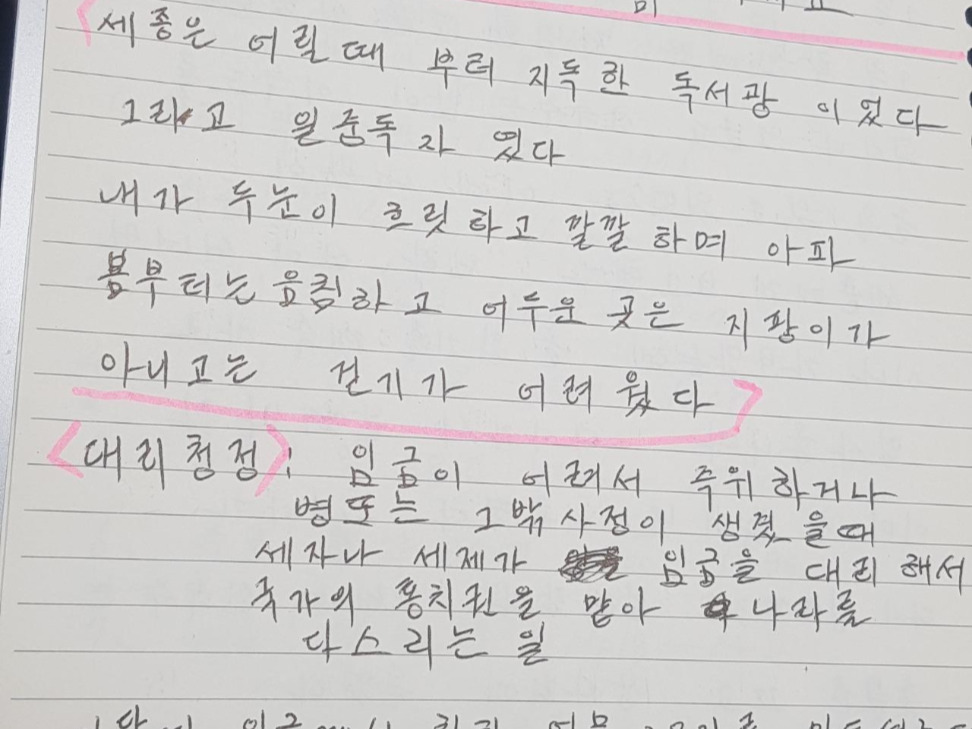 세종은 어릴때 부터 지독한 독서광 이었다
그리고 일중독 자 였다
내가 두눈이 흐릿하고 깔깔하며 아파
봄부터는 음침하고 어두운 곳은 지팡이가
아니고는 걷기가 어려웠다
<대리청정>: 임금이 어려서 즉위하거나
병또는 그밖 사정이 생겼을때
세자나 세제가 임금을 대리해서
국가의 통치권을 맡아 나라를
다스리는 일